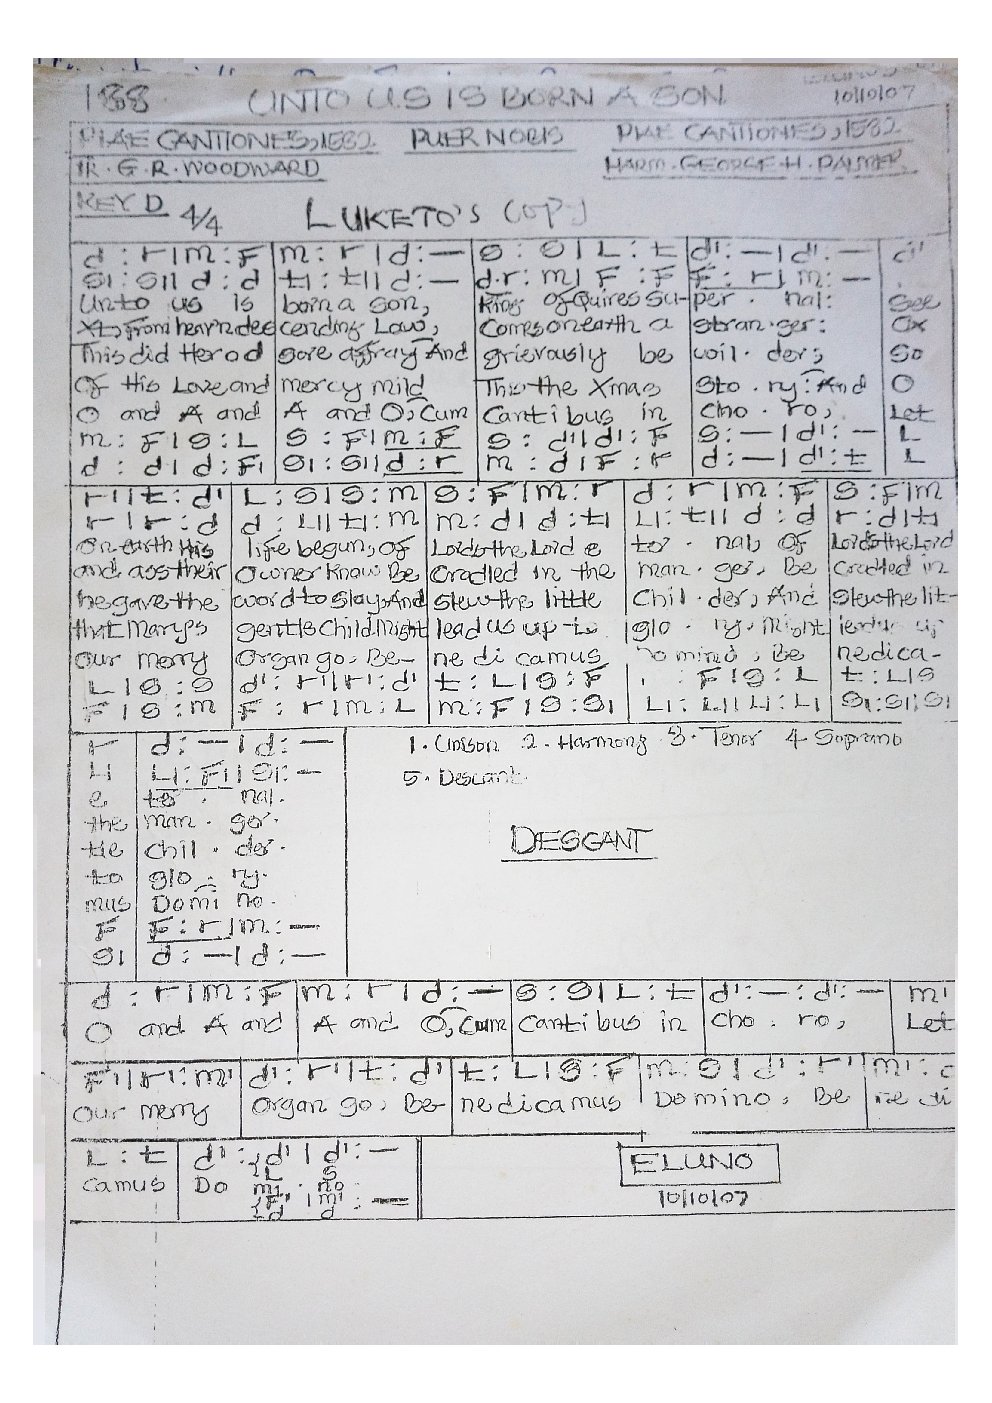 188 UNTO U.S IS BORN A SON 10/10/07
PIAE CANTIONES, 1582 PUER NOBIS PIAE CANTIONES, 1582
TR. G. R. WOODWARD HARM. GEORGE H. PALMER
KEY D 4/4 LUKETO'S COPY
d : r | m : F | m : r | d : — | s : s | L : t | d' : — | d' : — | d'
s₁ : s₁ | d : d | t₁ : t₁ | d : — | d.r : m | F : F | F : r | m : — | .
Unto us is born a son, King of Quires su- per . nal: See
Xt, from heav'n des cending Low, Comes on earth a stran . ger : Ox
This did Herod sore affray, And grievously be wil . der, So
Of His Love and mercy mild This the Xmas Sto . ry: And O
O and A and A and O, Cum Cantibus in cho . ro, Let
m : F | s : L | s : F | m : F | s : d' | d' : F | s : — | d' : — | L
d : d | d : F₁ | s₁ : s₁ | d : r | m : d | F : r | d : — | d' : t | L
r' | t : d' | L : s | s : m | s : F | m : r | d : r | m : F | s : F | m
r | r : d | d : L₁ | t₁ : m | m : d | d : t₁ | L₁ : t₁ | d : d | r : d | t₁
On earth His life begun, Of Lords the Lord e to . nal, Of Lords the Lord
and ass their Owner Know Be Cradled in the man . ger, Be Cradled in
he gave the word to slay, And Slew the little Chil . der, And Slew the lit-
that Marys gentle Child Might lead us up to glo . ry, Might lead us up
Our merry Organ go, Be- ne di camus Do mino, Be nedica-
L | s : s | d' : r' | r' : d' | t : L | s : F | . : F | s : L | t : L | s
F | s : m | F : r | m : L | m : F | s : s₁ | L₁ : L₁ | L₁ : L₁ | s₁ : s₁ | s₁
r | d : — | d : — 1. Unison 2. Harmony 3. Tenor 4. Soprano
L₁ | L₁ : F₁ | s₁ : — 5. Descant
e to . nal.
the man . ger.
tle Chil . der. DESCANT
to glo . ry.
mus Domi no.
F | F : r | m : —
s₁ | d : — | d : —
d : r | m : F | m : r | d : — | s : s | L : t | d' : — : d' : — | m'
O and A and A and O, Cum Cantibus in cho . ro, Let
F' | r' : m' | d' : r' | t : d' | t : L | s : F | m : s | d' : r' | m' :
Our merry Organ go, Be- nedicamus Domino, Be ne di
L : t | d' : {d' | d' : —
L s
camus Do mi . no ELUNO
{F' | m' : — 10/10/07
{d d